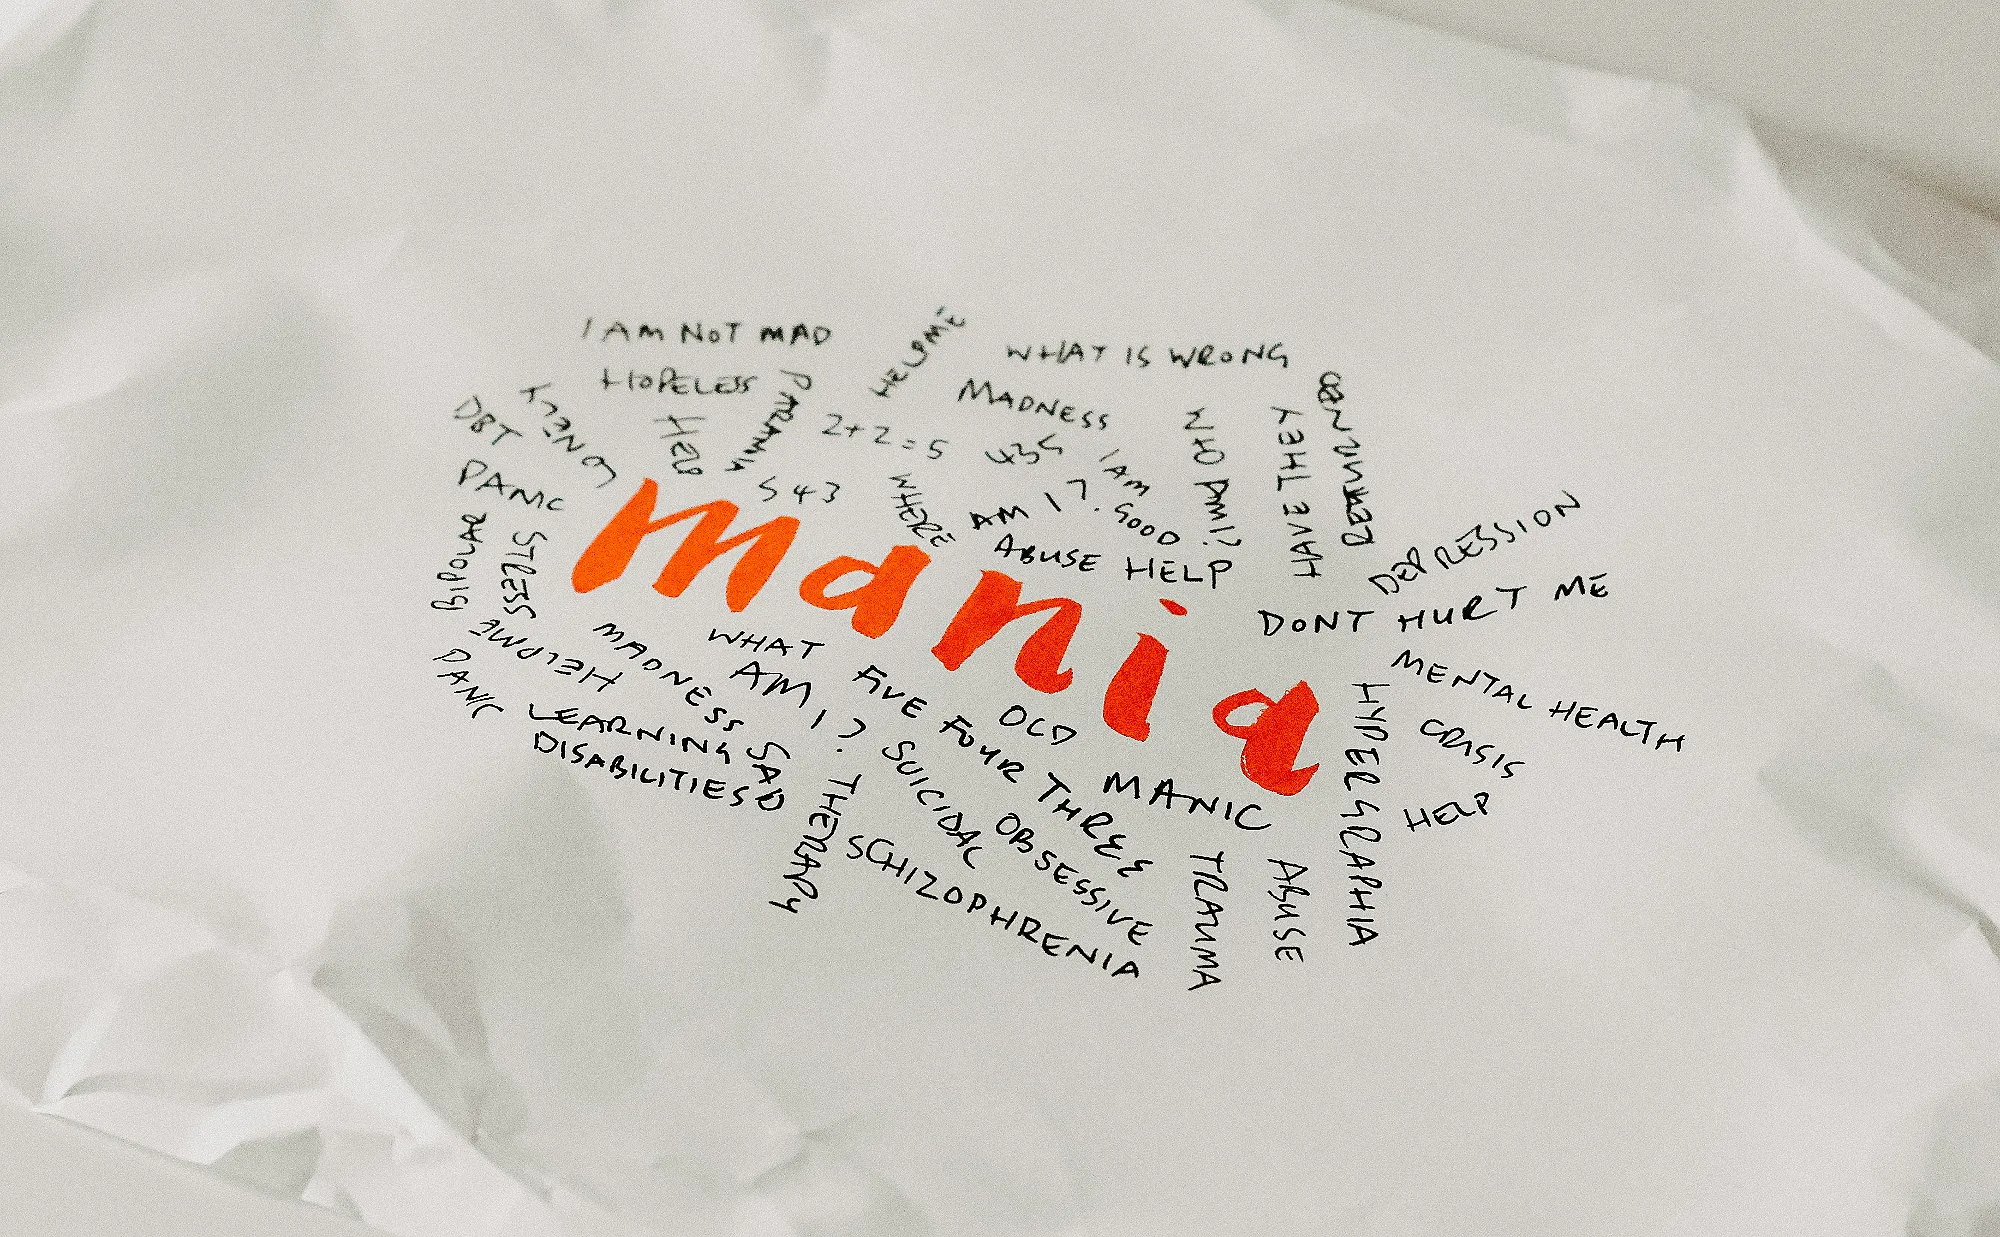 I AM NOT MAD
HELP ME
WHAT IS WRONG
HOPELESS
PARANIA
MADNESS
LONELY
DBT
HELP
2+2=5
435
I AM GOOD
WHO AM I?
HAVE THEY
PANIC
543
WHERE AM I?
ABUSE HELP
DEPRESSION
BIPOLAR
STRESS
mania
DONT HURT ME
HELP ME
MADNESS
WHAT AM I?
PANIC
LEARNING DISABILITIES
SAD
FIVE FOUR THREE
OLD
MENTAL HEALTH CRISIS
HYPERGRAPHIA
HELP
SUICIDAL
MANIC
THERAPY
OBSESSIVE
SCHIZOPHRENIA
TRAUMA
ABUSE